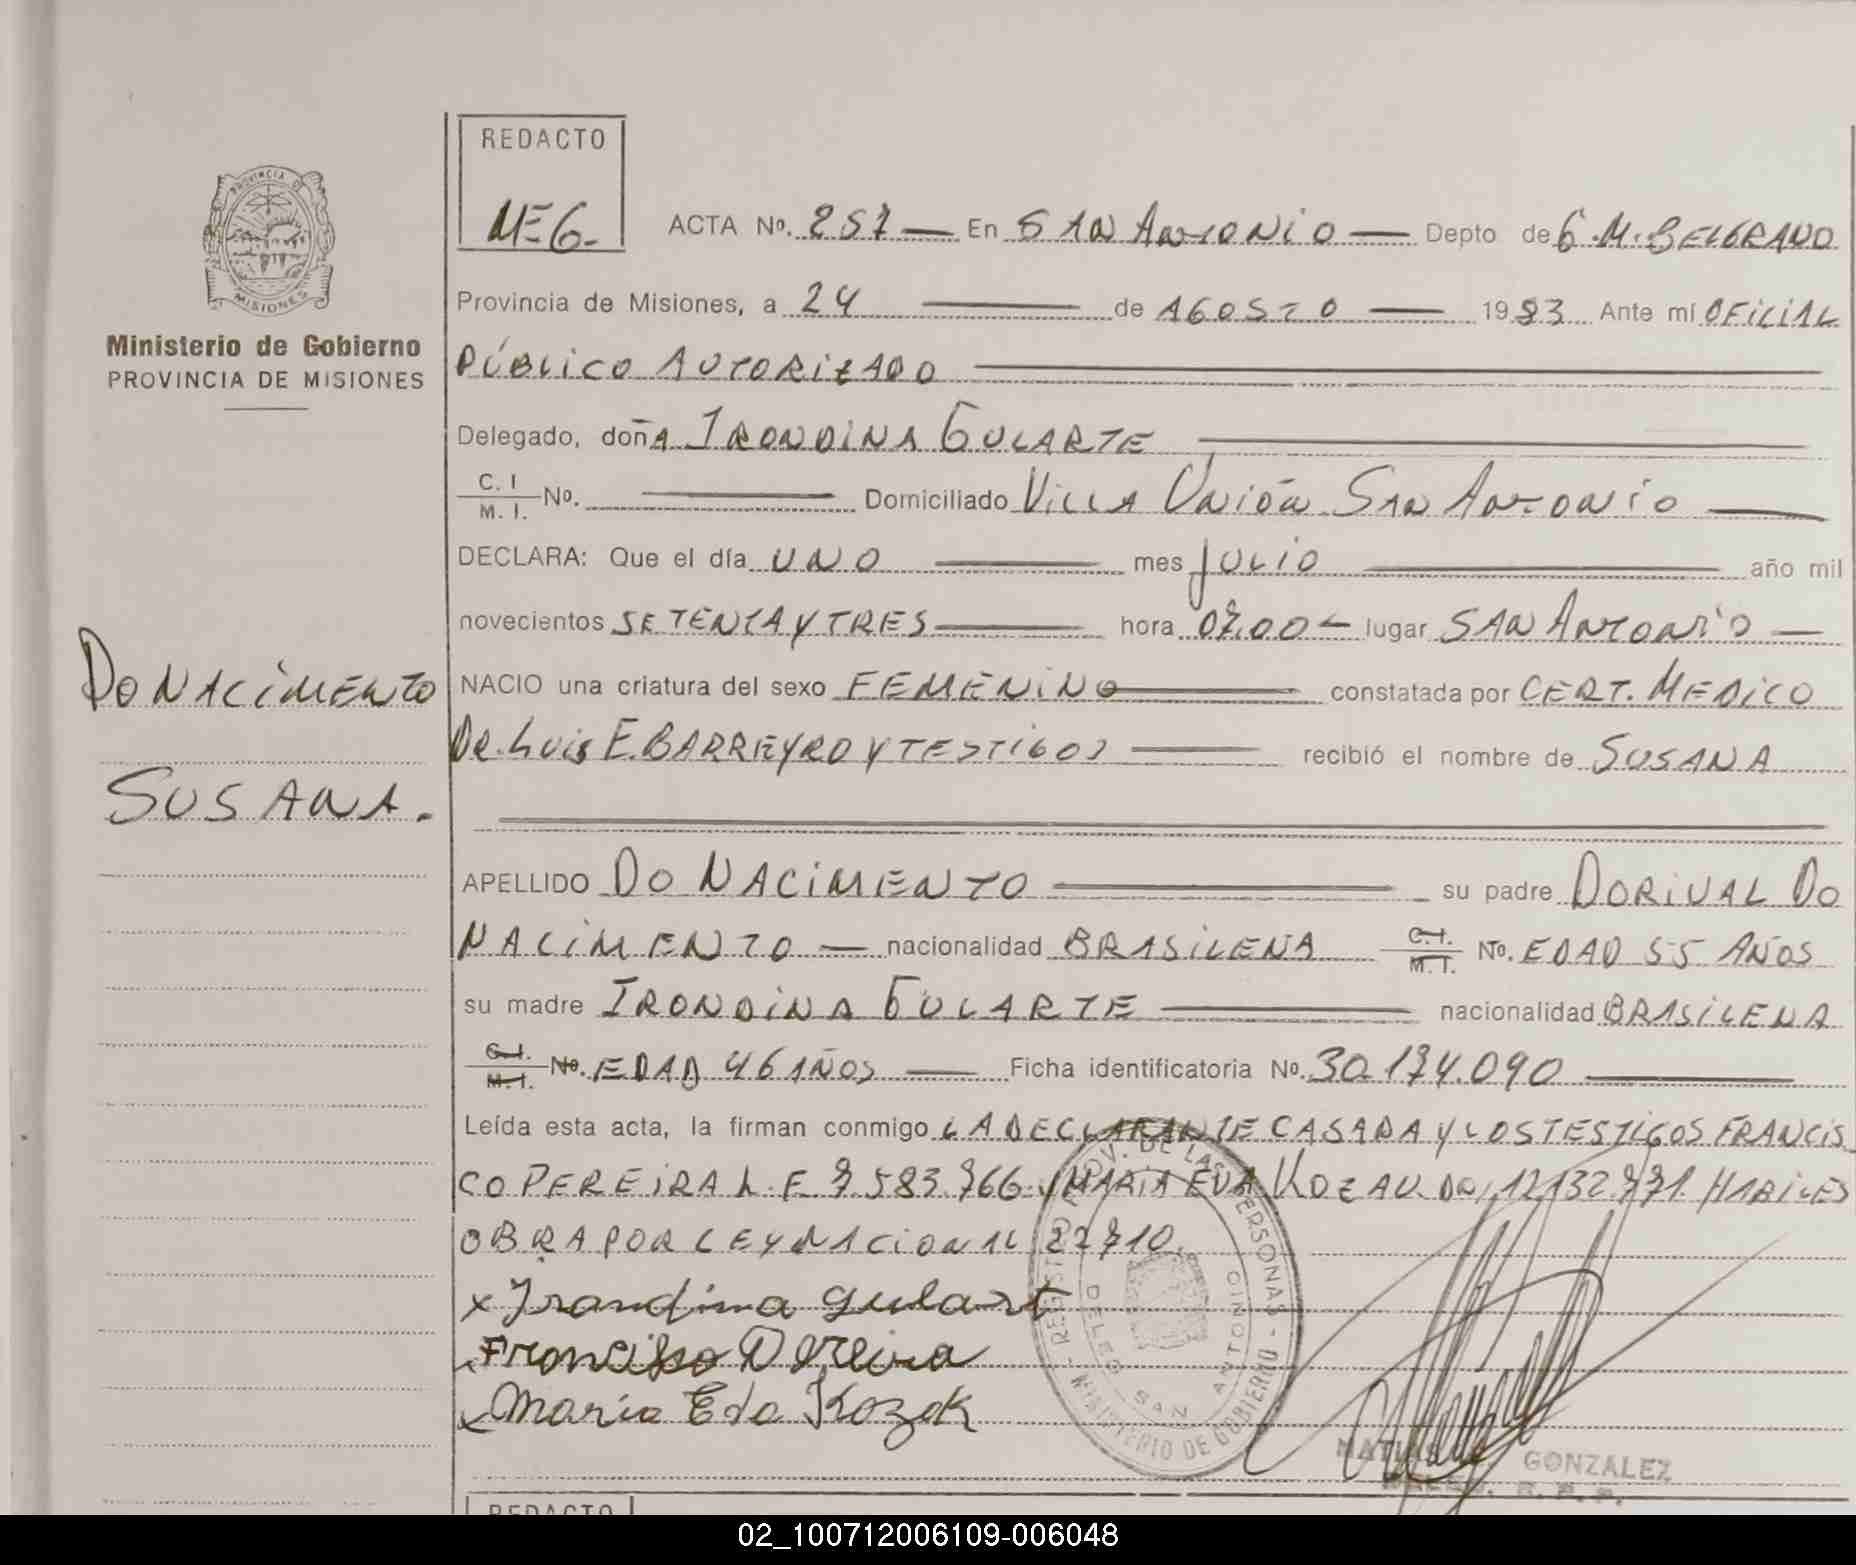 REDACTO
MEG.
PROVINCIA DE
MISIONES
Ministerio de Gobierno
PROVINCIA DE MISIONES
ACTA No. 257 — En SAN ANTONIO — Depto de G.M. BELGRANO
Provincia de Misiones, a 24 — de AGOSTO — 1983 Ante mí OFICIAL
PÚBLICO AUTORIZADO —
Delegado, doñA IRONDINA GULARTE —
C. I / M. I. No. — Domiciliado VILLA UNIÓN SAN ANTONIO —
DECLARA: Que el día UNO — mes JULIO — año mil
novecientos SETENTA Y TRES — hora 07.00 — lugar SAN ANTONIO —
DO NACIMENTO
NACIO una criatura del sexo FEMENINO — constatada por CERT. MEDICO
DR. LUIS E. BARREYRO Y TESTIGOS — recibió el nombre de SUSANA
SUSANA.
APELLIDO DO NACIMENTO — su padre DORIVAL DO
NACIMENTO — nacionalidad BRASILENA C.I. / M.I. No. EDAD 55 AÑOS
su madre IRONDINA GULARTE — nacionalidad BRASILENA
C.I. / M.I. No. EDAD 46 AÑOS — Ficha identificatoria No. 30.174.090 —
Leída esta acta, la firman conmigo LA DECLARANTE CASADA Y LOS TESTIGOS FRANCIS
CO PEREIRA L.E 7.583.766 y MARIA EVA KOZAU. DO, 12.132.771. HABILES
OBRA POR LEY NACIONAL 22710.
x Irondina gulart
Francisco Pereira
x Maria Eva Kozak
REGISTRO PROV. DE LAS PERSONAS - MINISTERIO DE GOBIERNO -
DELEG. SAN ANTONIO
GONZALEZ
REDACTO
02_100712006109-006048